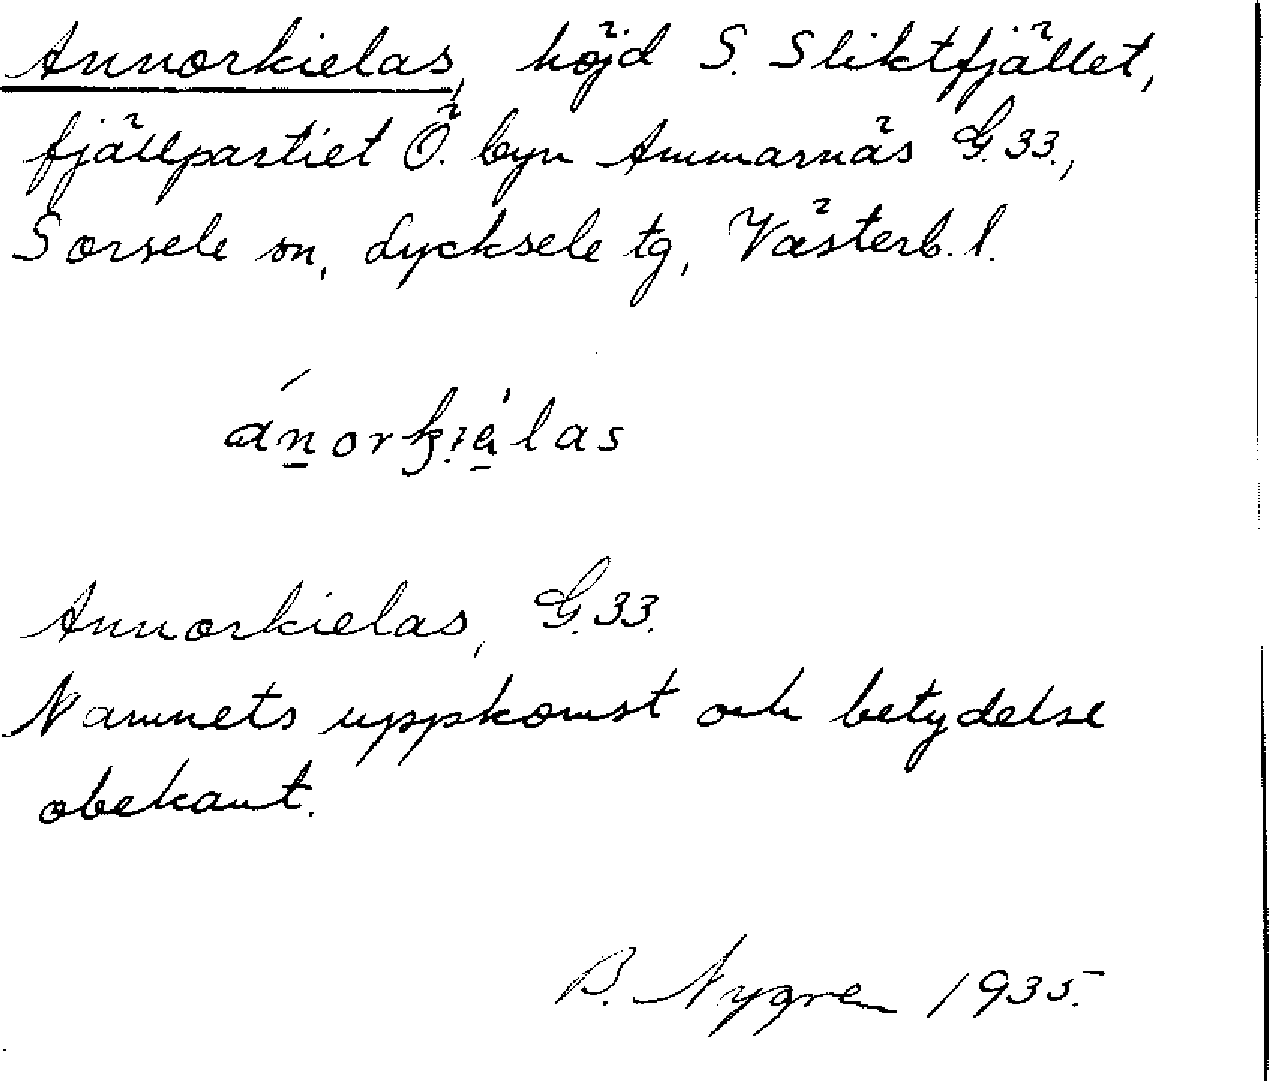 Annorkielas, höjd S. Sliktfjället,
fjällpartiet Ö. byn Ammarnäs G. 33.,
Sorsele sn, Lycksele tg, Västerb. l.
Annorkielas, G. 33.
Namnets uppkomst och betydelse
obekant.
B. Nygren 1935.